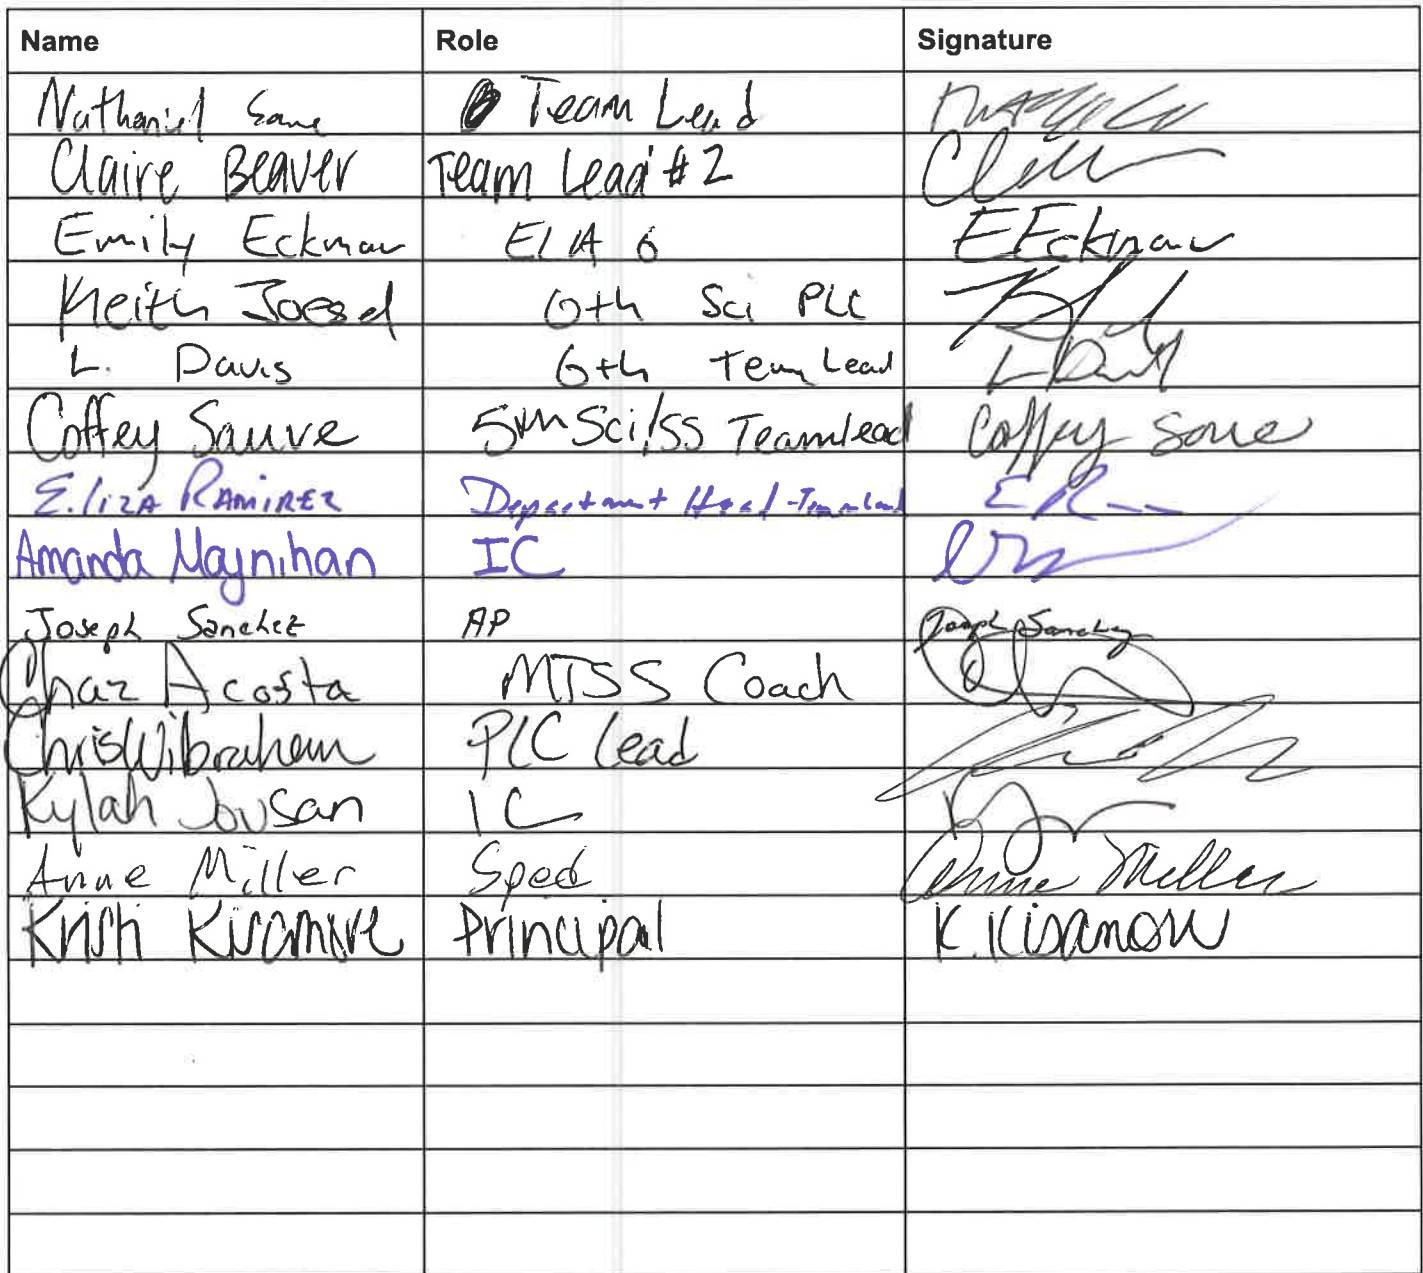 Name Role Signature
Nathaniel Team Lead
Claire Beaver Team Lead #2
Emily Eckman ELA 6 EEckman
Keith 6th Sci PLC
L. Davis 6th Team Lead
Coffey Sauve 5th Sci/SS Teamlead Coffey
E.liza Ramirez Department Head - Teamlead ER
Amanda Maynihan IC
Joseph Sanchez AP Joseph Sanchez
Chaz Acosta MTSS Coach
Chris Wilbraham PLC Lead
Kylah IC
Anne Miller Sped Anne Miller
Principal